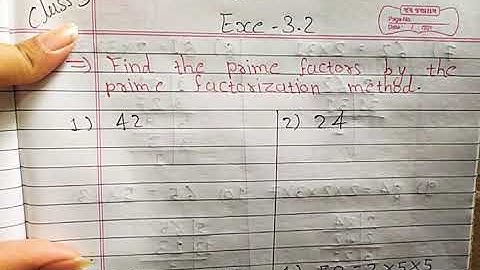 Class 5
Exc - 3.2
Page No.
Date
→) Find the prime factors by the
prime factorization method.
1) 42
2) 24